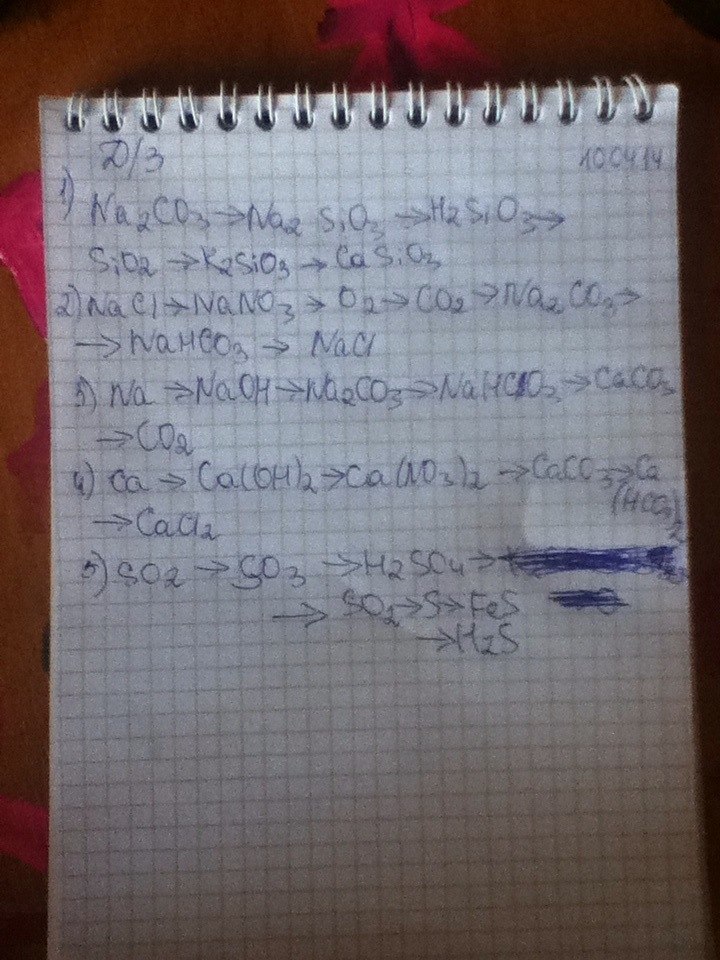 Д/З 100414
1) Na2CO3 → Na2SiO3 → H2SiO3 →
SiO2 → K2SiO3 → CaSiO3
2) NaCl → NaNO3 → O2 → CO2 → Na2CO3 →
→ NaHCO3 → NaCl
3) Na → NaOH → Na2CO3 → NaHCO3 → CaCO3
→ CO2
4) Ca → Ca(OH)2 → Ca(NO3)2 → CaCO3 → Ca
(HCO3)2
→ CaCl2
5) SO2 → SO3 → H2SO4 →
→ SO2 → S → FeS
→ H2S